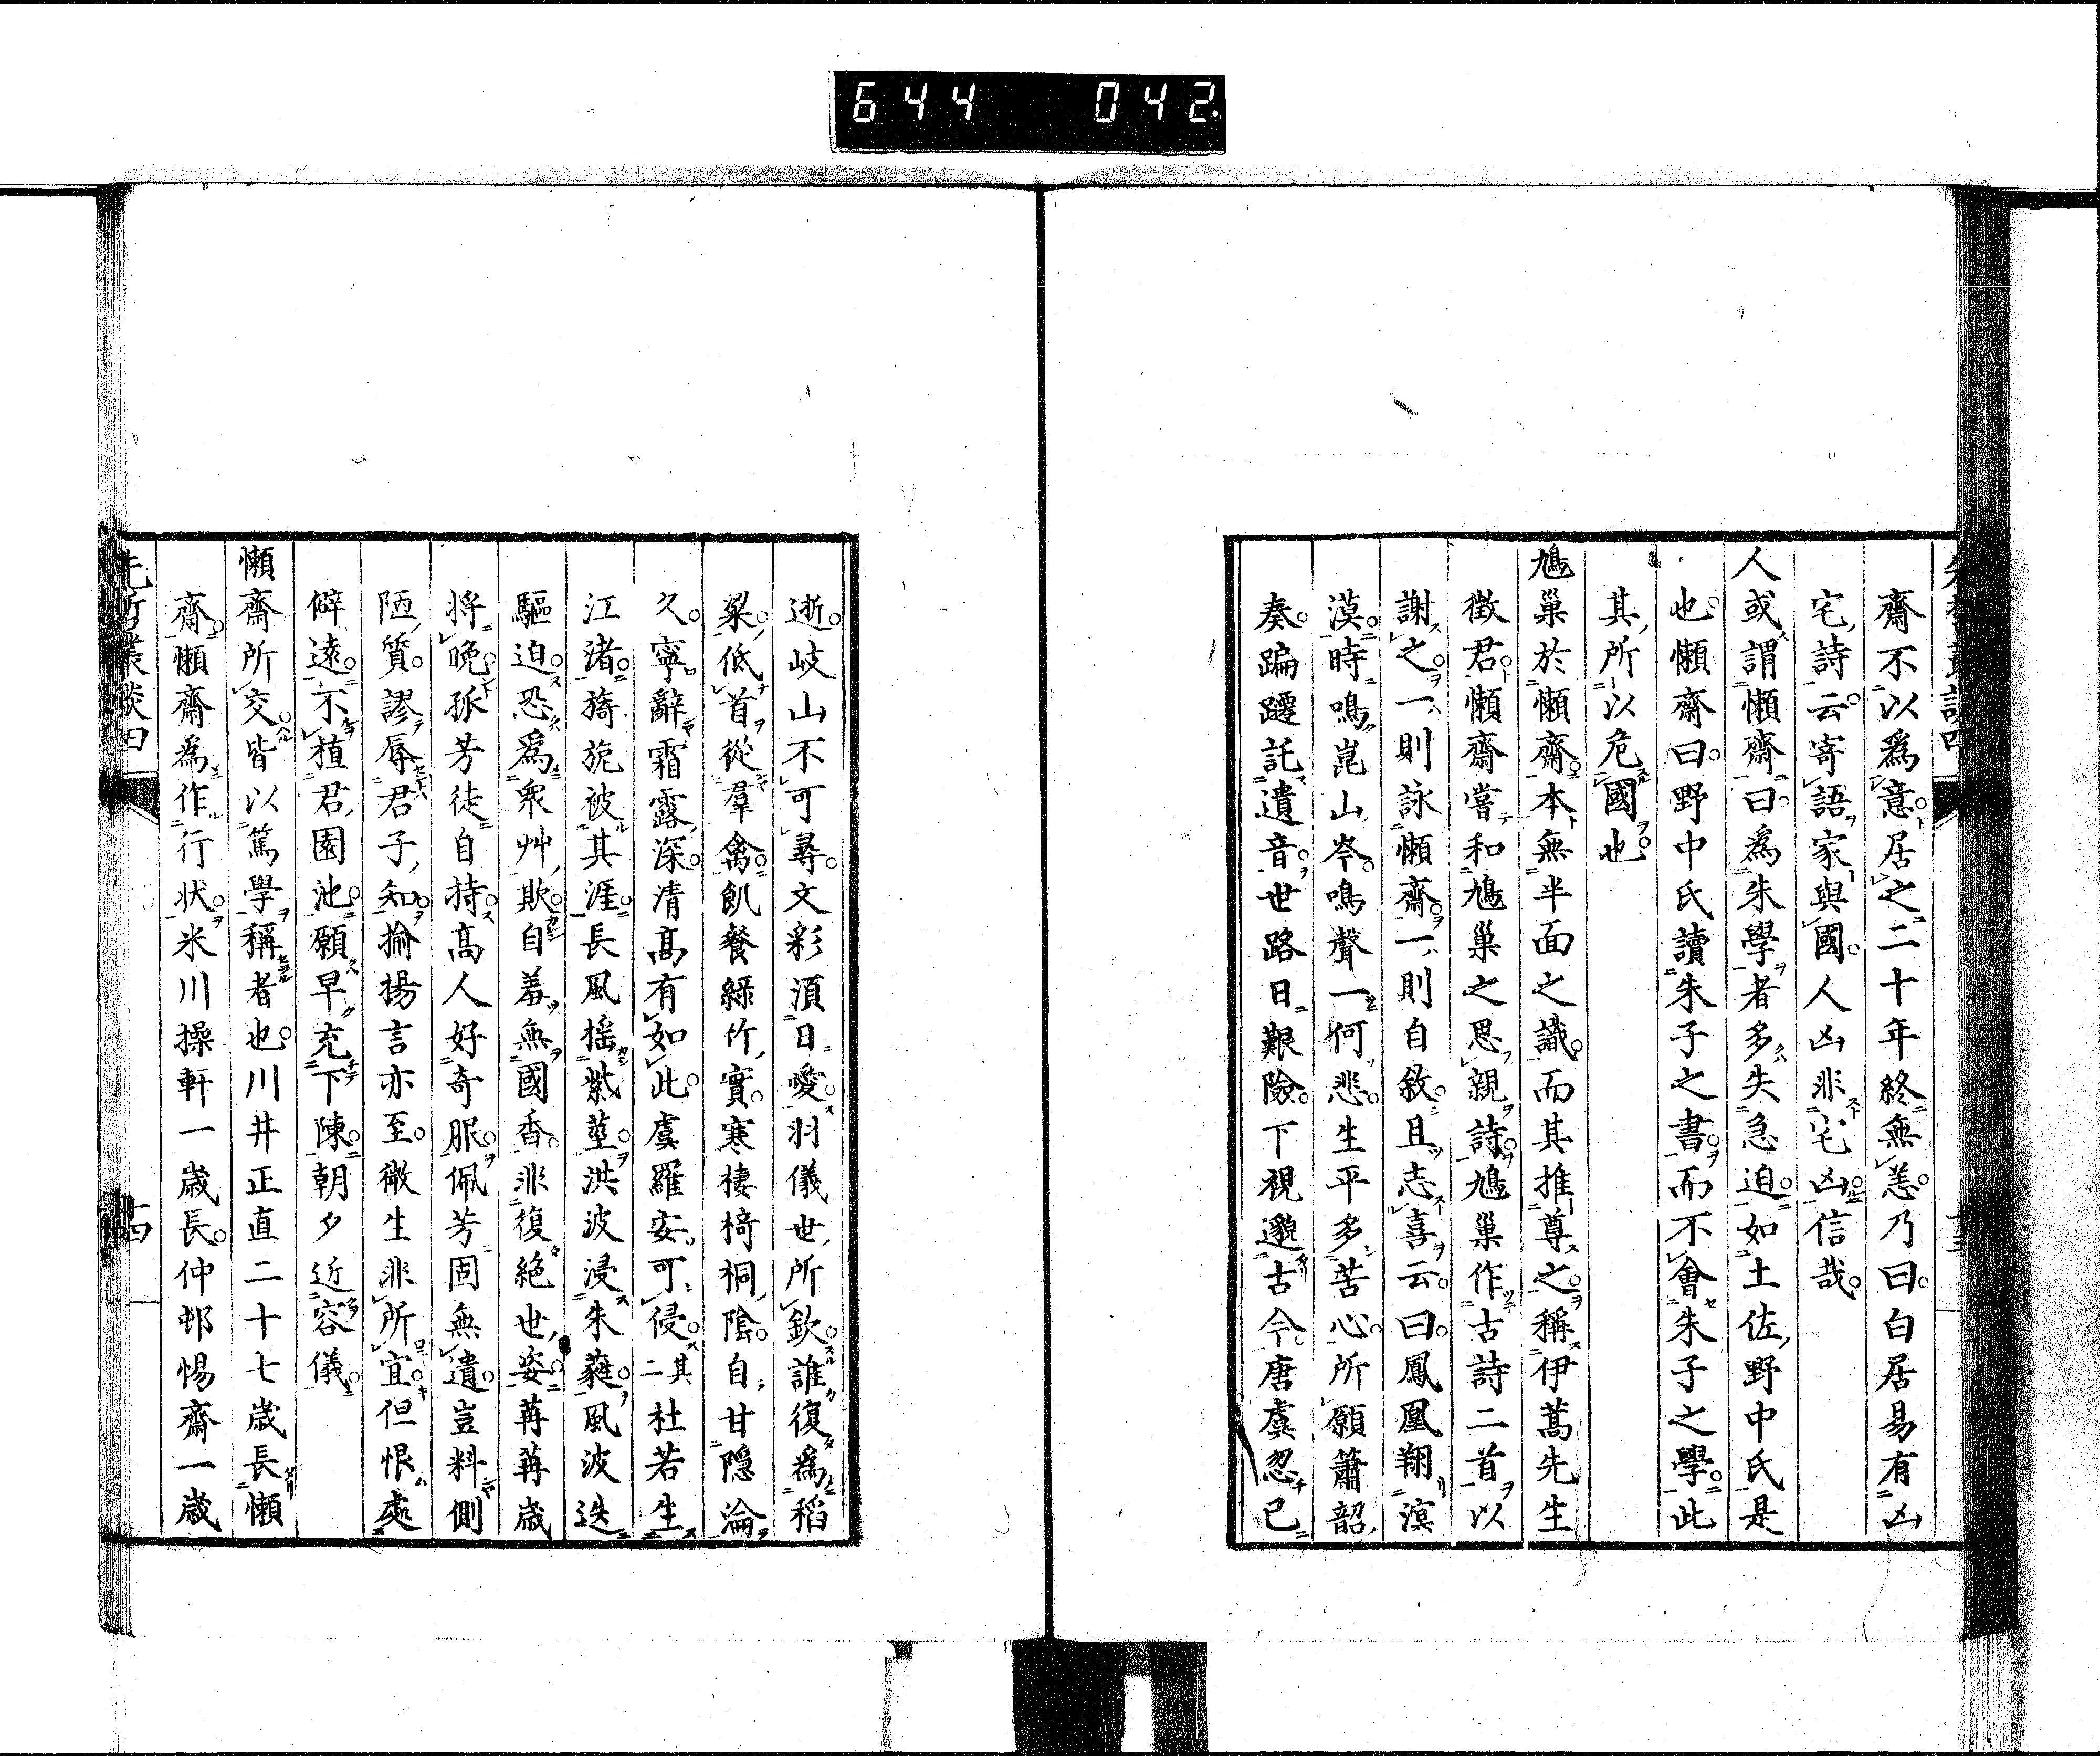 644 042
齋不以爲意居之二十年終無恙乃曰白居易有凶
宅詩云寄語家與國人凶非宅凶信哉
人或謂懶齋曰爲朱學者多失急迫如土佐野中氏是
也懶齋曰野中氏讀朱子之書而不會朱子之學此
其所以危國也
鳩巢於懶齋本無半面之識而其推尊之稱伊蒿先生
徵君懶齋嘗和鳩巢之思親詩鳩巢作古詩二首以
謝之一則詠懶齋一則自敘且志喜云曰鳳凰翔溟
漠時鳴崑山岑鳴聲一何悲生平多苦心所願簫韶
奏蹁躚託遺音世路日艱險下視邈古今唐虞忽已
逝岐山不可尋文彩湏日愛羽儀世所欽誰復爲稻
粱低首從羣禽飢餐緑竹實寒棲椅桐陰自甘隠淪
久寧辭霜露深清高有如此虞羅安可侵其二杜若生
江渚旖旎被其涯長風揺紫莖洪波浸朱蕤風波迭
驅迫恐爲衆艸欺自羞無國香非復絶世姿苒苒歳
将晩孤芳徒自持高人好奇服佩芳固無遺豈料側
陋質謬辱君子知揄揚言亦至微生非所宜但恨處
僻遠不植君園池願早充下陳朝夕近容儀
懶齋所交皆以篤學稱者也川井正直二十七歳長懶
齋懶齋爲作行状米川操軒一歳長仲邨惕齋一歳
先哲叢談四
十四